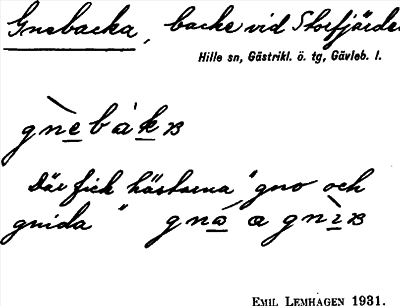 Gnebacka, backe vid Storfjärde
Hille sn, Gästrikl. ö. tg, Gävleb. l.
gnèbákɐ
Där fick hästarna "gno och
gnida" gnó a gnìɐ
EMIL LEMHAGEN 1931.